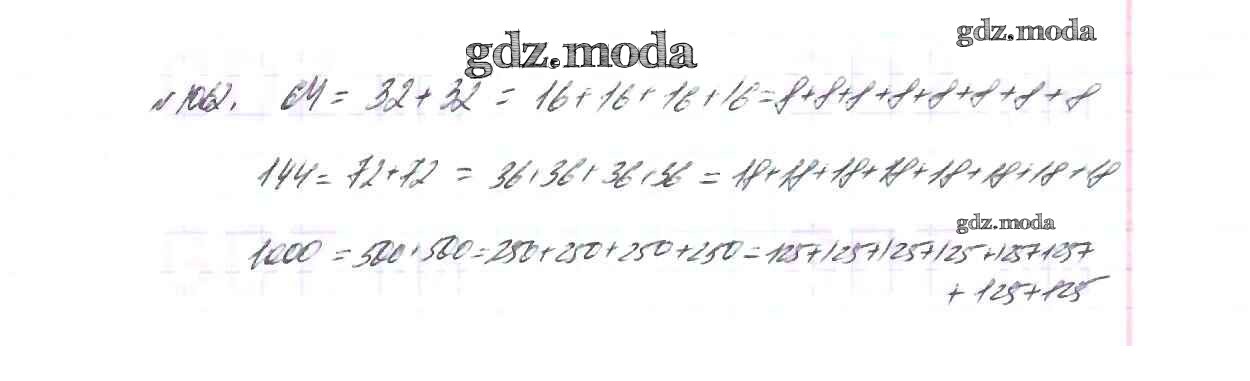 gdz.moda
gdz.moda
№ 1062. 64 = 32 + 32 = 16 + 16 + 16 + 16 = 8+8+8+8+8+8+8+8
144 = 72+72 = 36+36+36+36 = 18+18+18+18+18+18+18+18
gdz.moda
1000 = 500+500=250+250+250+250=125+125+125+125+125+125
+ 125+125